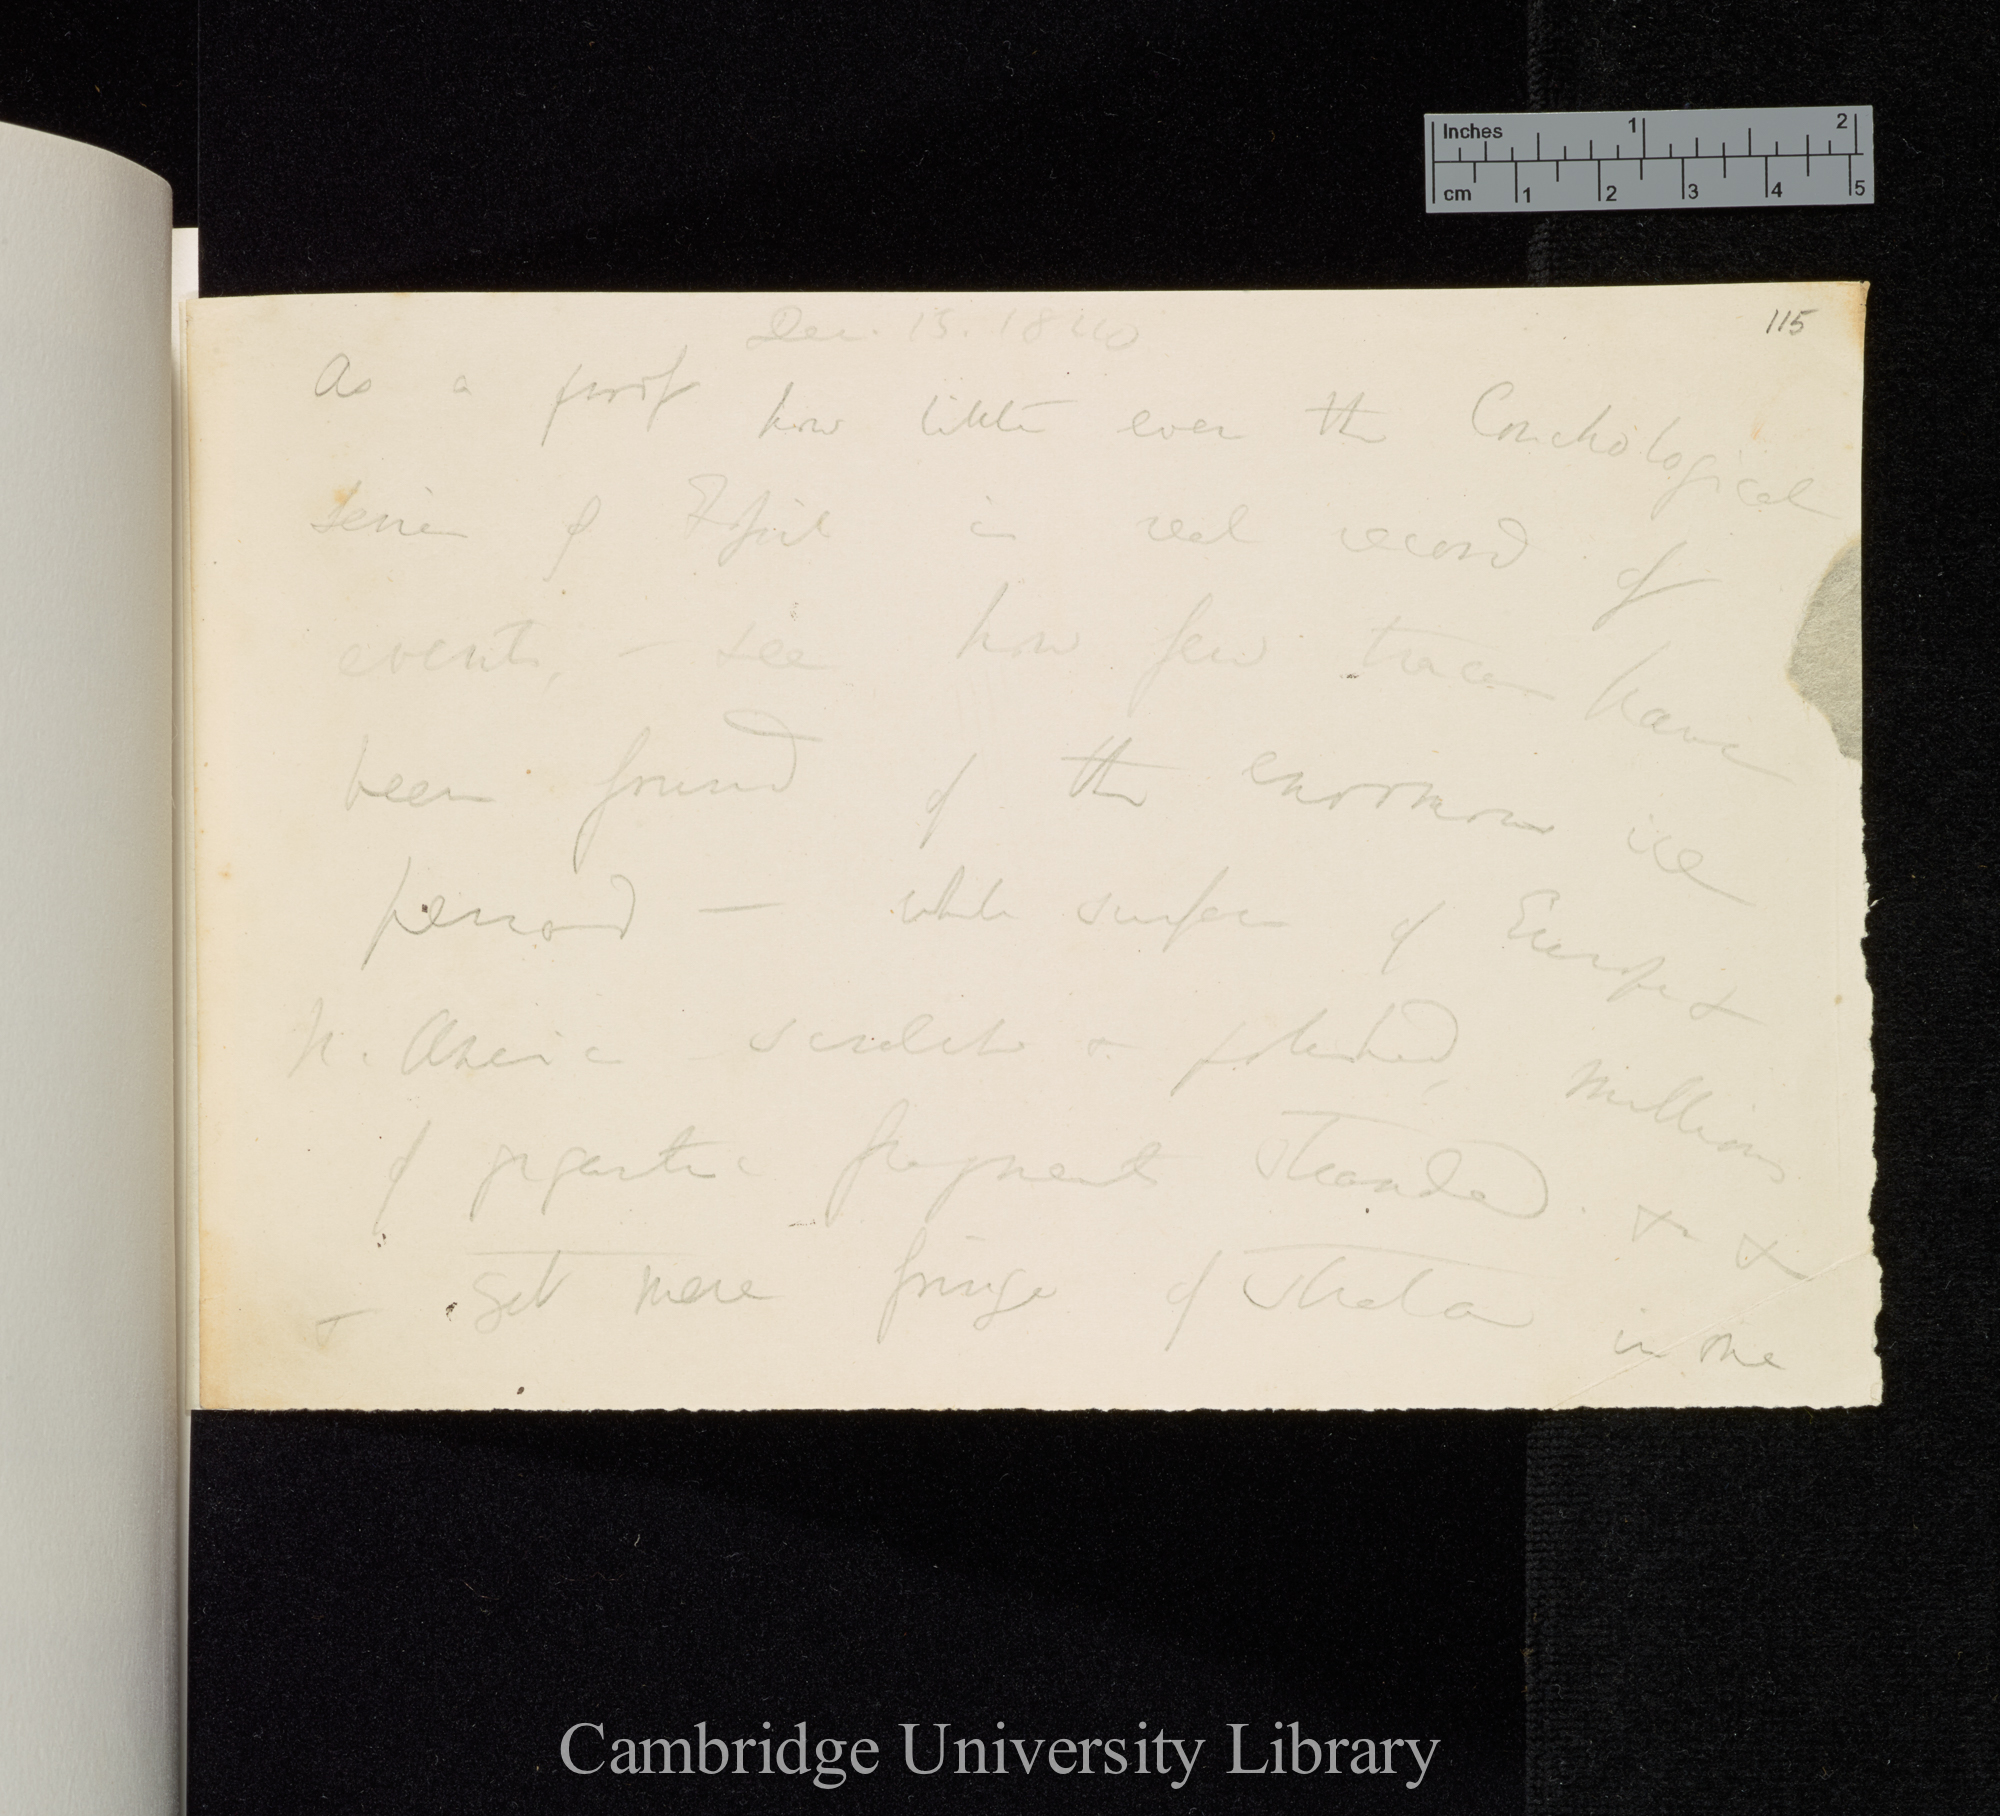 Inches 1 2
cm 1 2 3 4 5
115
Dec. 15. 1840
As a proof how little even the Conchological
series of Fossils is real record of
events, — see how few traces have
been found of the enormous ice
period — whole surface of Europe &
N. America scratched & polished, millions
of gigantic fragments stranded. & &
& yet mere fringe of strata in one
Cambridge University Library